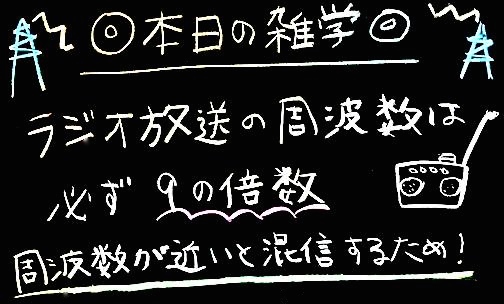 ◎本日の雑学◎
ラジオ放送の周波数は
必ず9の倍数
周波数が近いと混信するため!